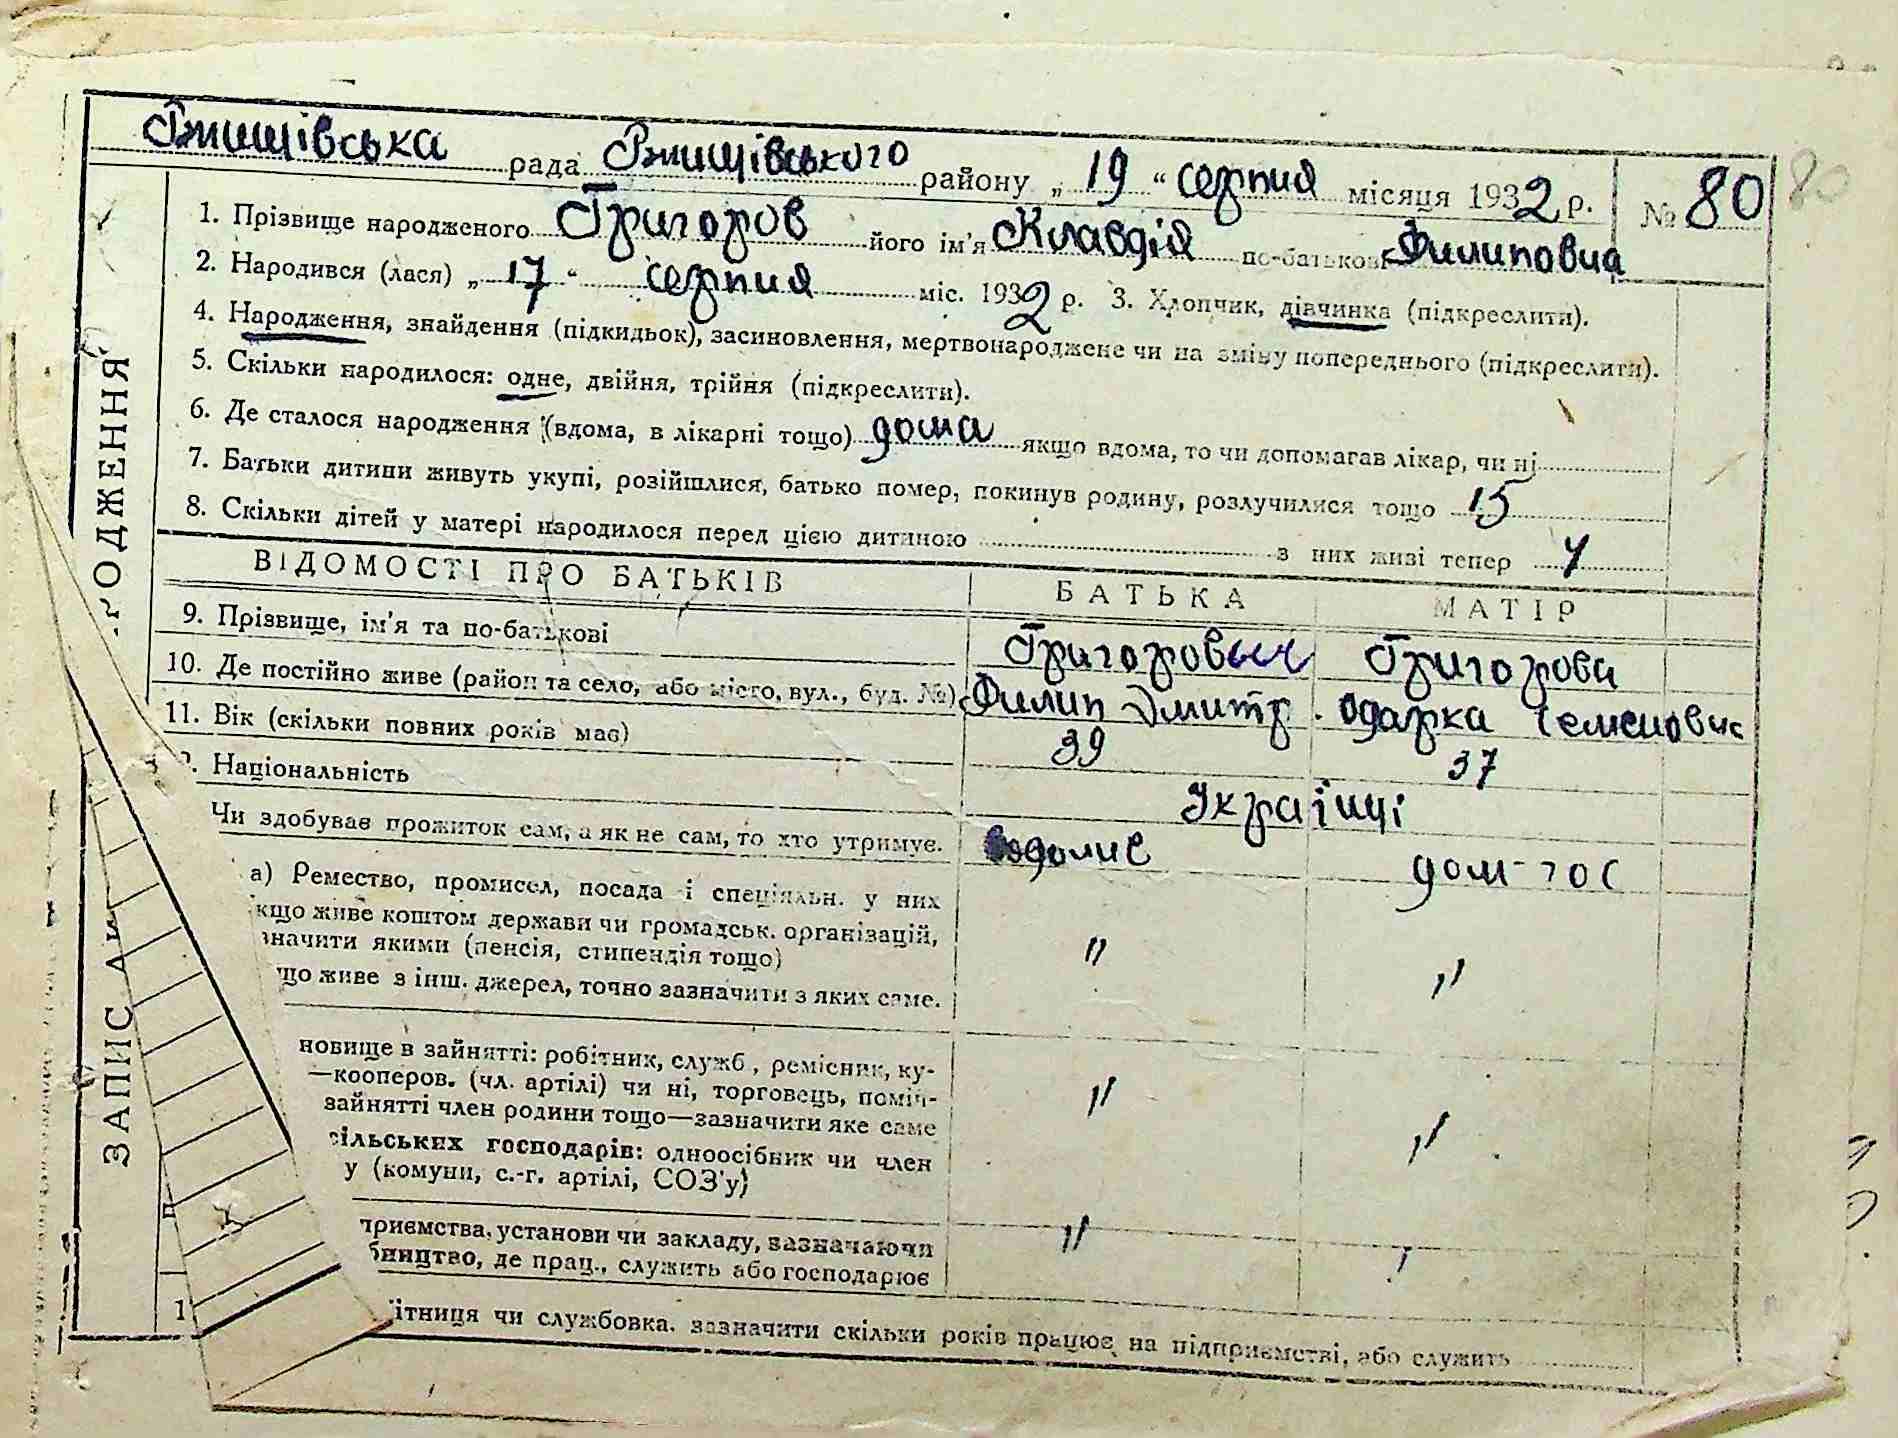 Ржищівська рада Ржищівського району „19“ серпня місяця 1932 р. № 80
80
1. Прізвище народженого Григоров його ім'я Клавдія по-батькові Филиповна
2. Народився (лася) „17“ серпня міс. 1932 р. 3. Хлопчик, дівчинка (підкреслити).
4. Народження, знайдення (підкидьок), засиновлення, мертвонароджене чи на зміну попереднього (підкреслити).
5. Скільки народилося: одне, двійня, трійня (підкреслити).
6. Де сталося народження (вдома, в лікарні тощо) дома якщо вдома, то чи допомагав лікар, чи ні
7. Батьки дитини живуть укупі, розійшлися, батько помер, покинув родину, розлучилися тощо 15
8. Скільки дітей у матері народилося перед цією дитиною з них живі тепер
ВІДОМОСТІ ПРО БАТЬКІВ БАТЬКА МАТІР
9. Прізвище, ім'я та по-батькові Григорова
10. Де постійно живе (район та село, або місто, вул., буд. №) Филип Дмитр. Одарка Семеновн
11. Вік (скільки повних років має) 39 37
. Національність Українці
Чи здобував прожиток сам, а як не сам, то хто утримує. дом-гос
а) Ремество, промисел, посада і спеціяльн. у них
кщо живе коштом держави чи громадськ. організацій, "
значити якими (пенсія, стипендія тощо) "
що живе з інш. джерел, точно зазначити з яких саме.
новище в зайнятті: робітник, служб., ремісник, ку-
—кооперов. (чл. артілі) чи ні, торговець, поміч- "
зайнятті член родини тощо—зазначити яке саме "
сільських господарів: одноосібник чи член
у (комуни, с.-г. артілі, СОЗ'у)
приємства, установи чи закладу, зазначаючи "
бництво, де прац., служить або господарює
1 ітниця чи службовка, зазначити скільки років працює на підприємстві, або служить
РОДЖЕННЯ
ЗАПИС